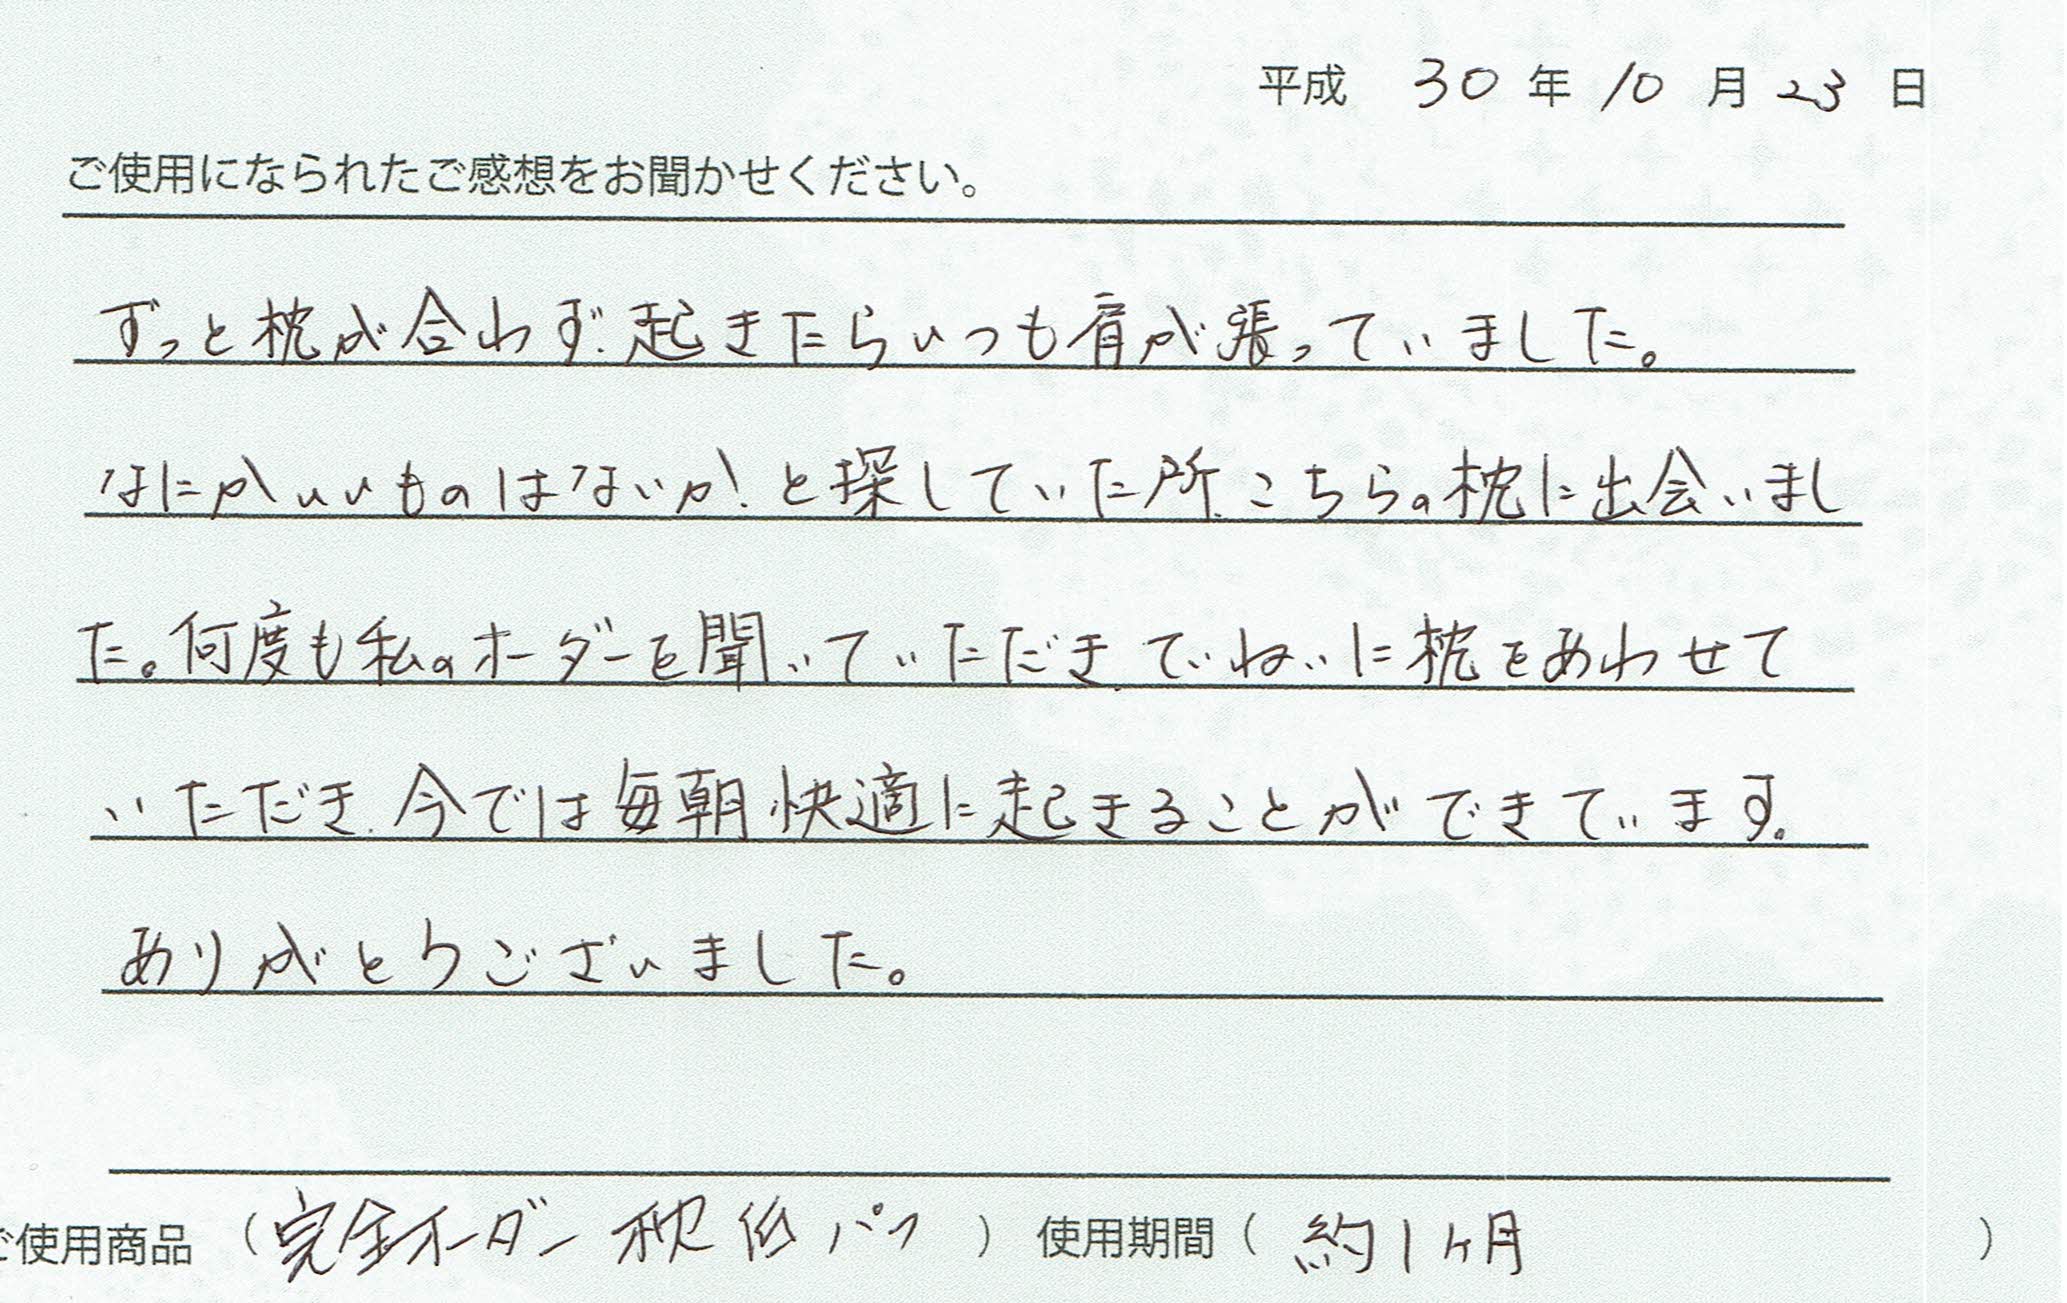 平成 30 年 10 月 23 日
ご使用になられたご感想をお聞かせください。
ずっと枕が合わず、起きたらいつも肩が張っていました。
なにかいいものはないか!と探していた所、こちらの枕に出会いまし
た。何度も私のオーダーを聞いていただき、ていねいに枕をあわせて
いただき、今では毎朝快適に起きることができています。
ありがとうございました。
ご使用商品 (完全オーダー 枕 低 パフ) 使用期間 (約1ヶ月)